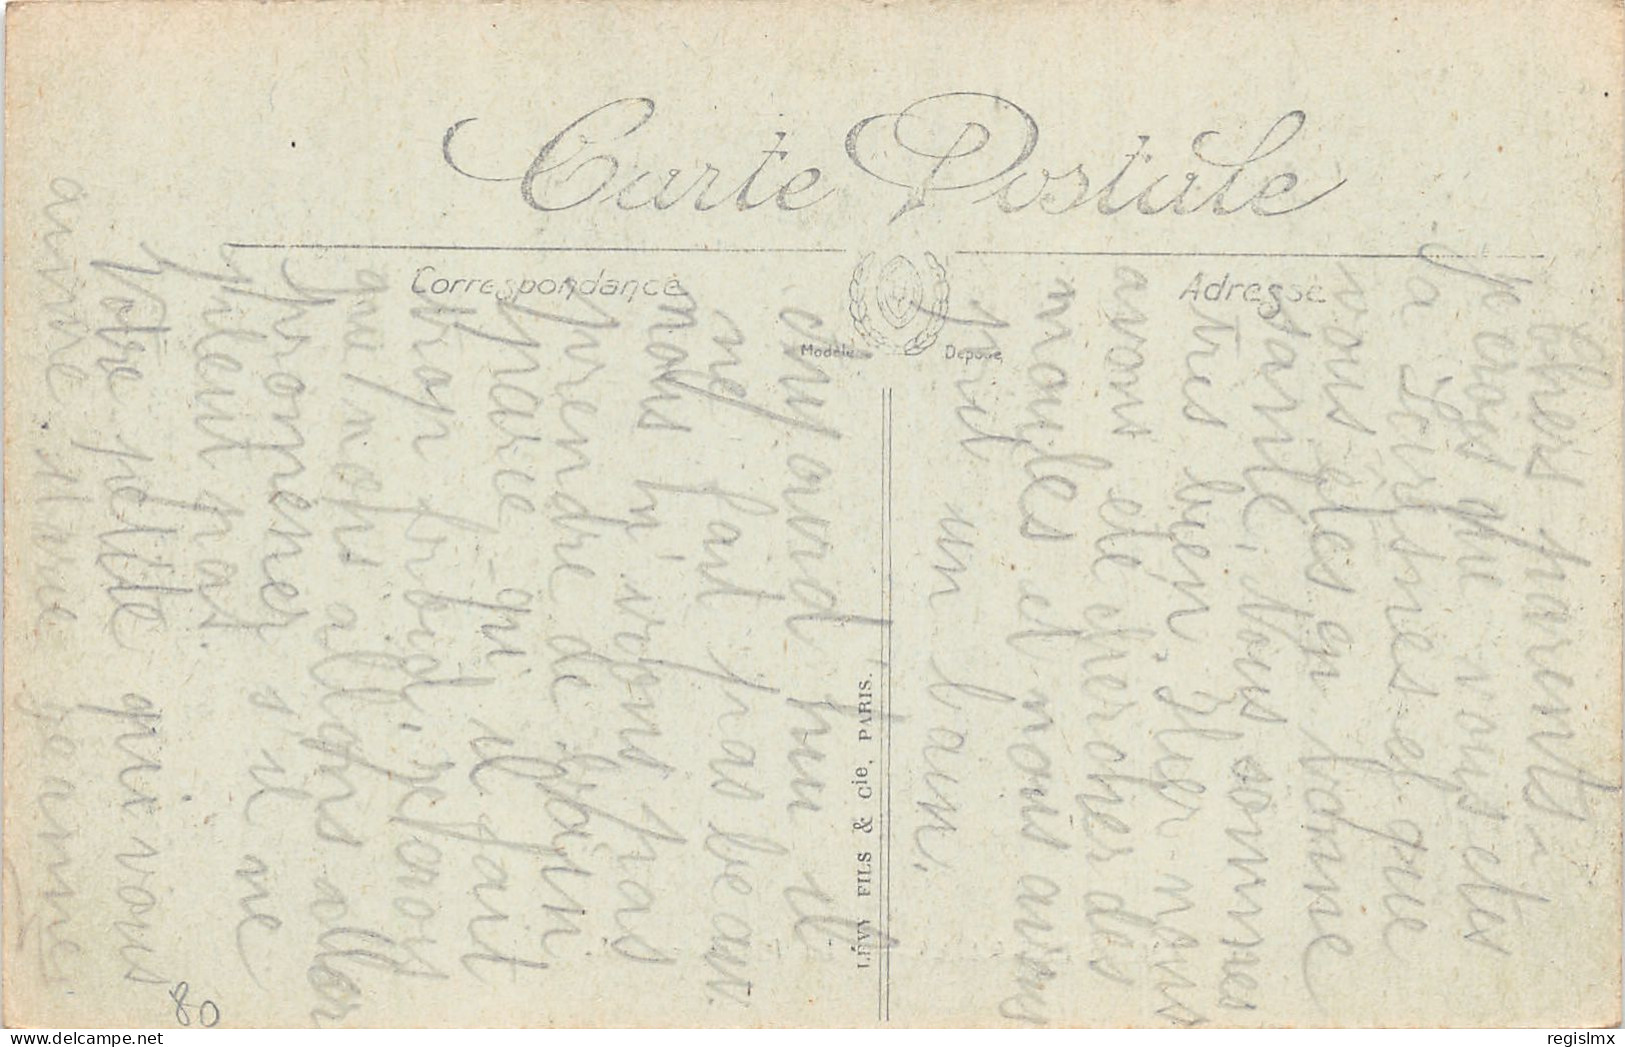 Carte Postale
Correspondance
Adresse
Modèle Déposé
LÉVY FILS & Cie, PARIS.
Chers parents,
je crois que vous etes
à Loirsnes et que
vous êtes en bonne
santé. Nous sommes
très bien. Hier nous
avons été chercher des
moules et nous avons
pris un bain.
aujourd hui il
ne fait pas beau.
nous n'irons pas
prendre de bain
parce qu il fait
trop froid, je crois
que nous allons aller
promener s'il ne
pleut pas.
Votre petite qui vous
aime Marie Jeanne
80
regislmx
www.delcampe.net